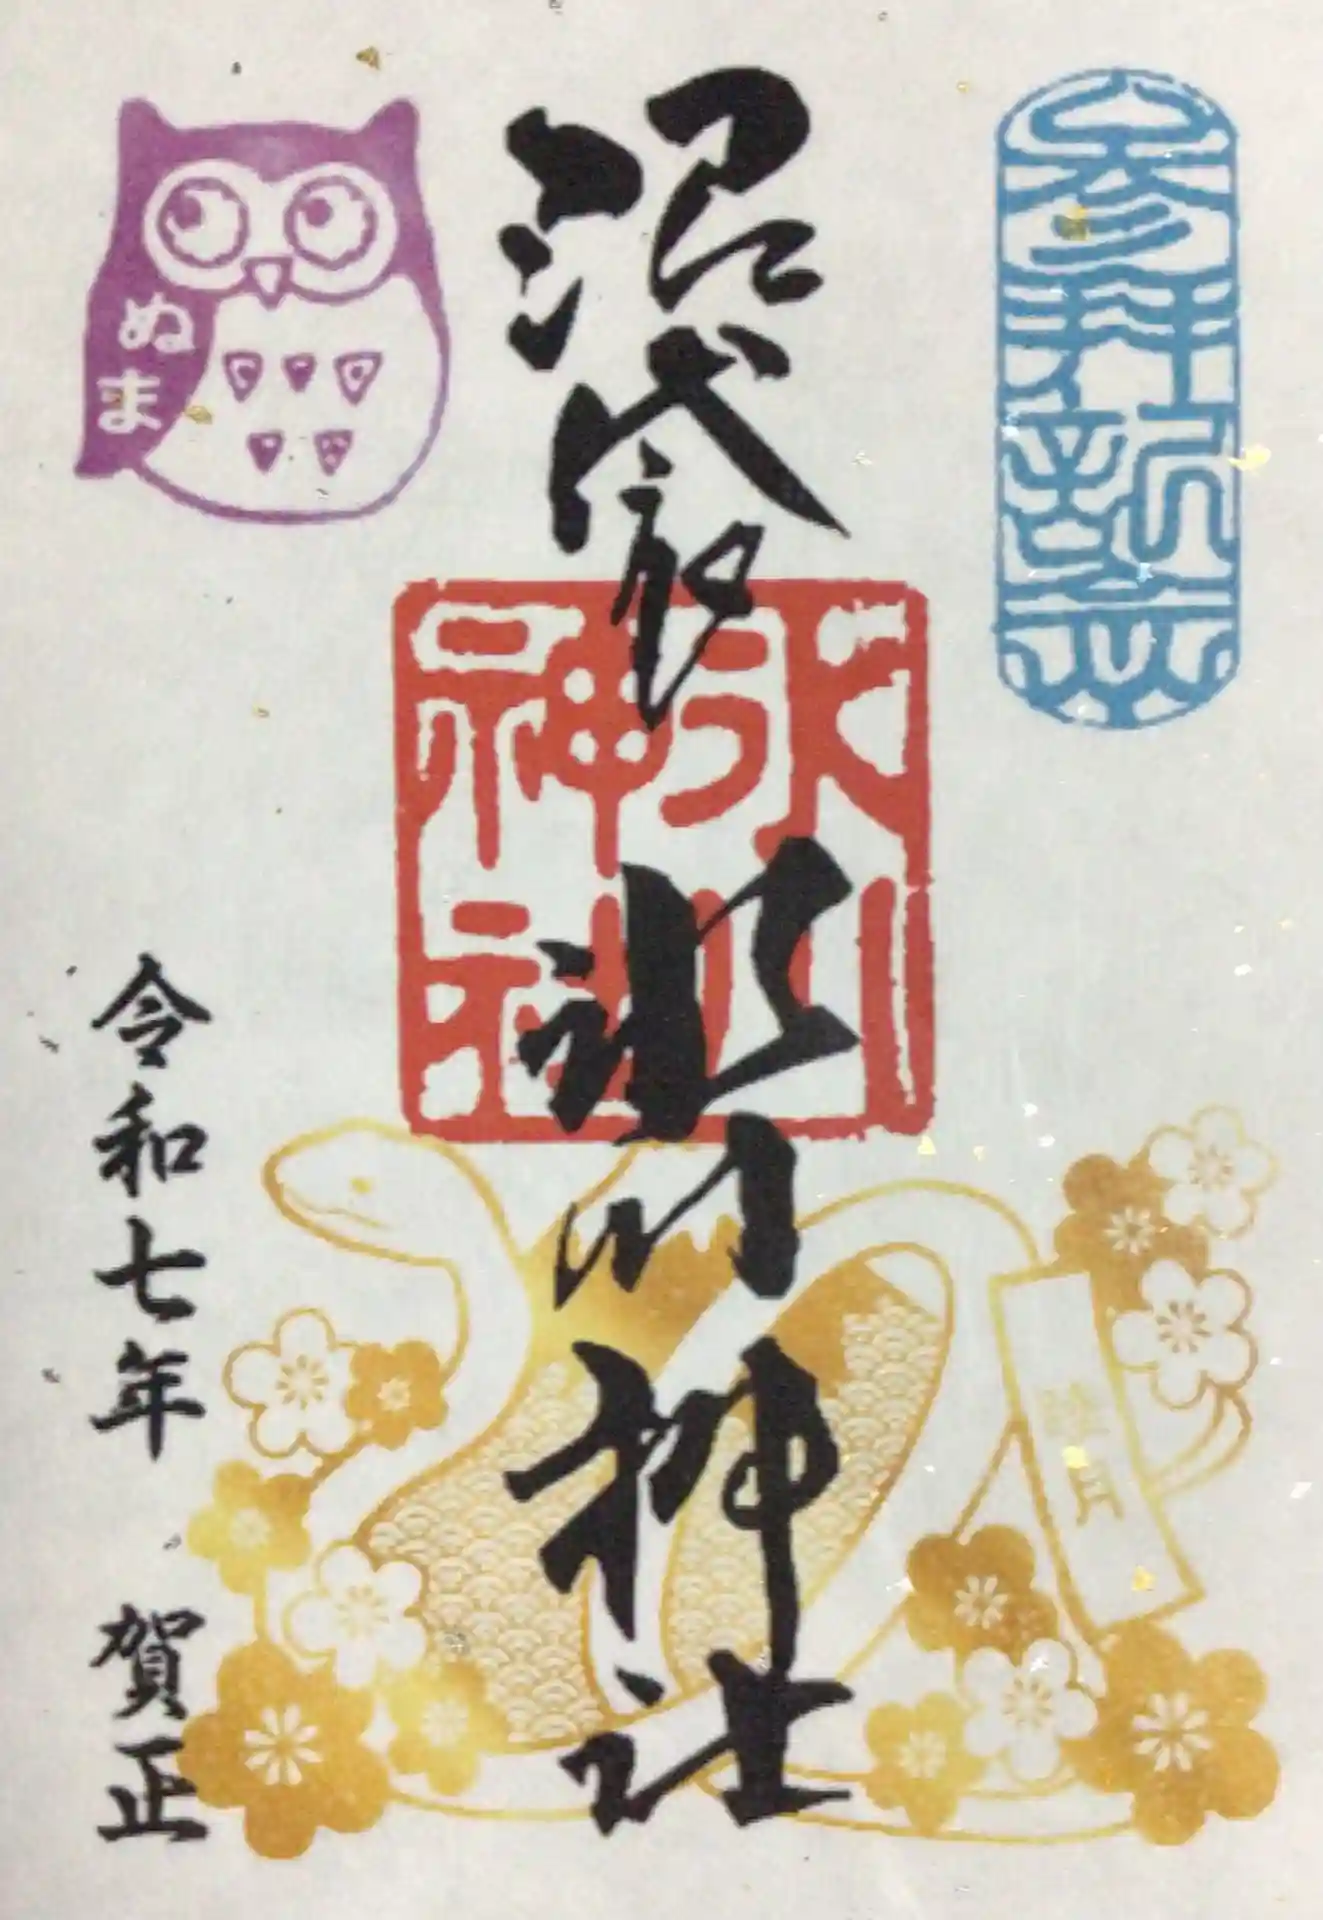 参拝記念
沼袋
氷川神社
氷川
神社
ぬま
睦月
令和七年 賀正